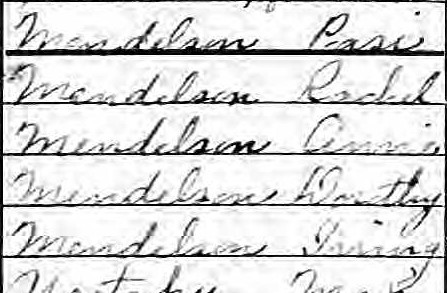 Mendelson Pasi
Mendelson Rachel
Mendelson Annie
Mendelson Dorothy
Mendelson Irving